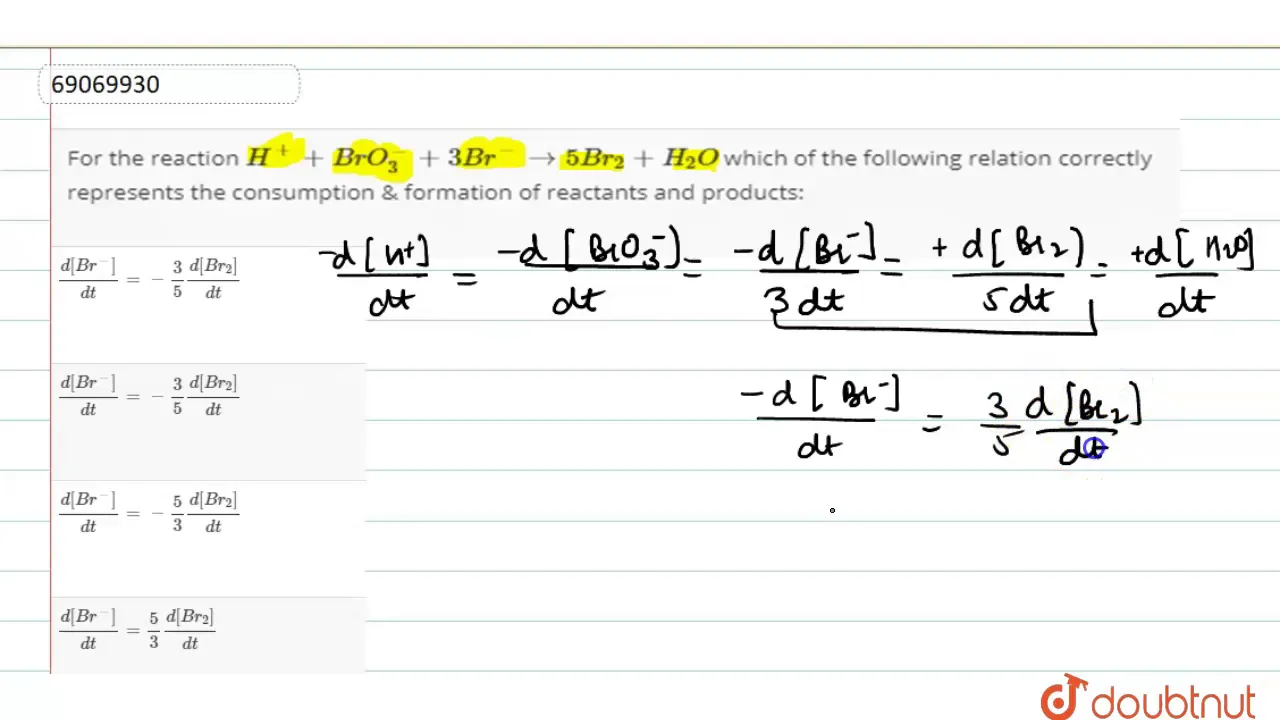 69069930
For the reaction H⁺ + BrO₃⁻ + 3Br⁻ → 5Br₂ + H₂O which of the following relation correctly
represents the consumption & formation of reactants and products:
-d[H+]/dt = -d[BrO₃⁻]/dt = -d[Br⁻]/3dt = +d[Br₂]/5dt = +d[H₂O]/dt
d[Br⁻]/dt = - 3/5 d[Br₂]/dt
-d[Br⁻]/dt = 3/5 d[Br₂]/dt
d[Br⁻]/dt = - 3/5 d[Br₂]/dt
d[Br⁻]/dt = - 5/3 d[Br₂]/dt
d[Br⁻]/dt = 5/3 d[Br₂]/dt
doubtnut